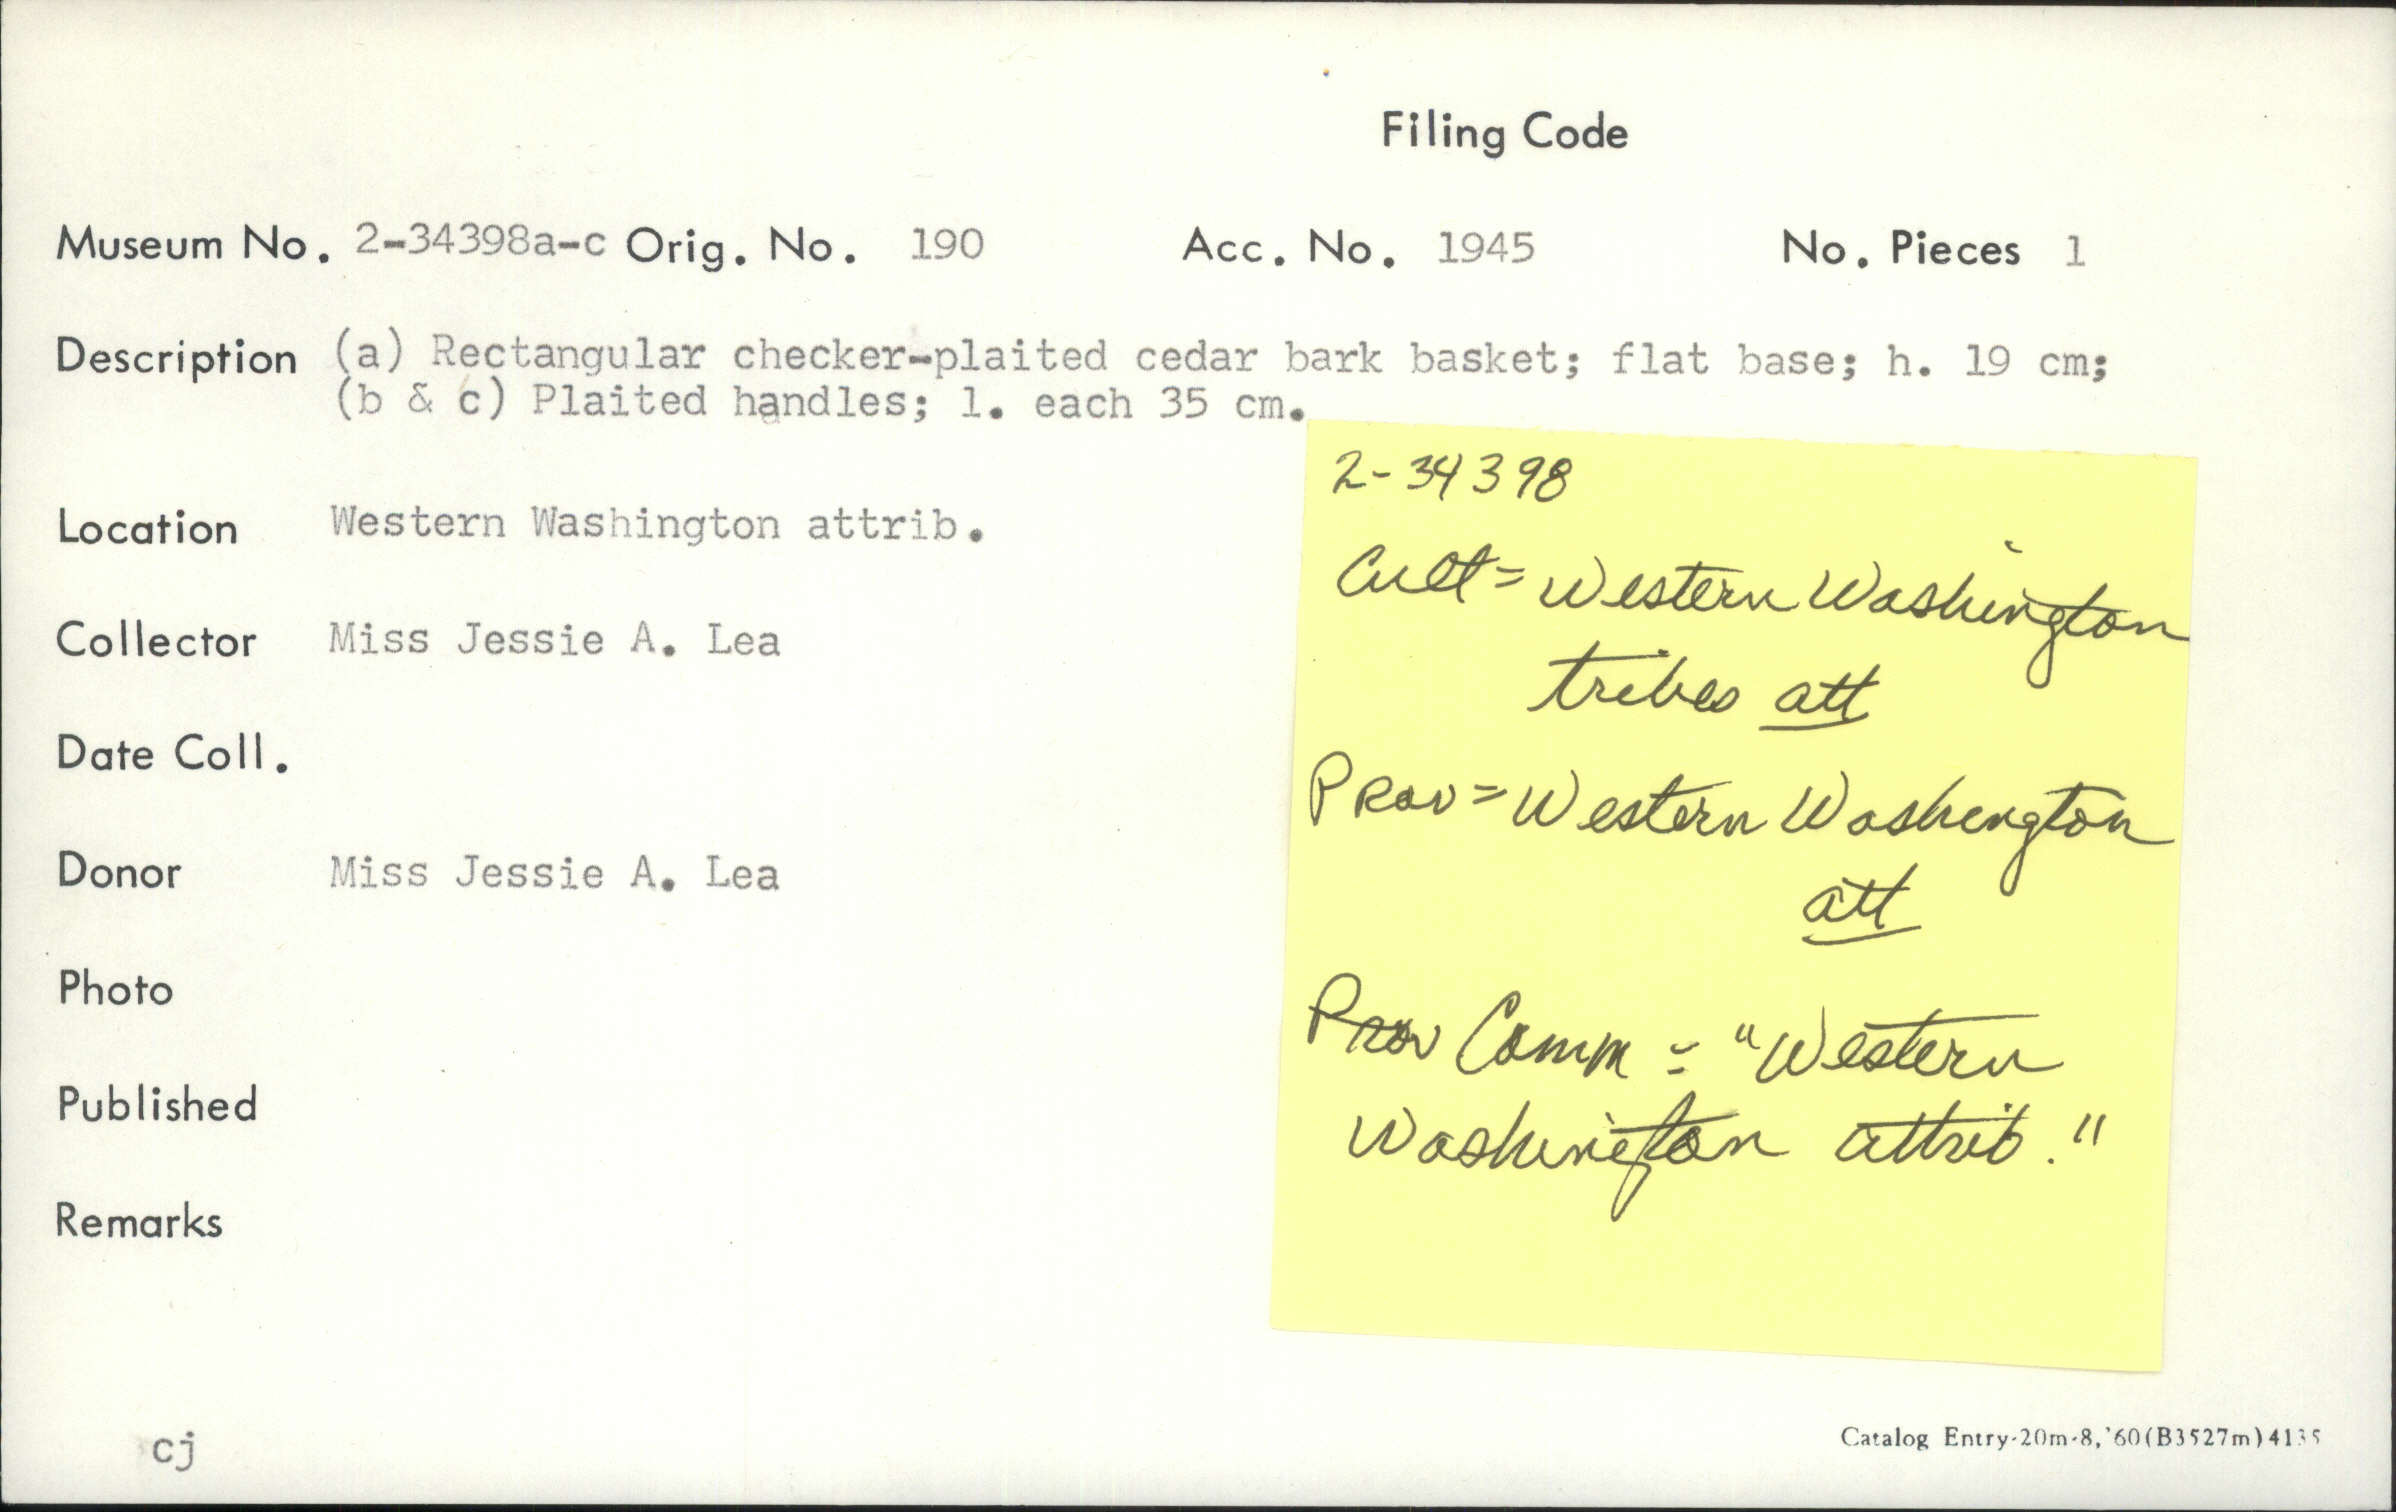 Filing Code
Museum No. 2-34398a-c Orig. No. 190 Acc. No. 1945 No. Pieces 1
Description (a) Rectangular checker-plaited cedar bark basket; flat base; h. 19 cm;
(b & c) Plaited handles; l. each 35 cm.
Location Western Washington attrib.
Collector Miss Jessie A. Lea
Date Coll.
Donor Miss Jessie A. Lea
Photo
Published
Remarks
2-34398
Cult = Western Washington
tribes att
Prov = Western Washington
att
Prov Comm = "Western
Washington attrib."
cj
Catalog Entry-20m-8,'60(B3527m)4135